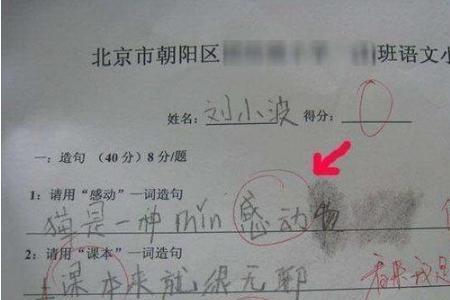 北京市朝阳区 班语文小
姓名：刘小波 得分：0
一：造句（40分）8分/题
1：请用“感动”一词造句
猫是一种min感动物
2：请用“课本”一词造句
课本来就很无聊 看来我是